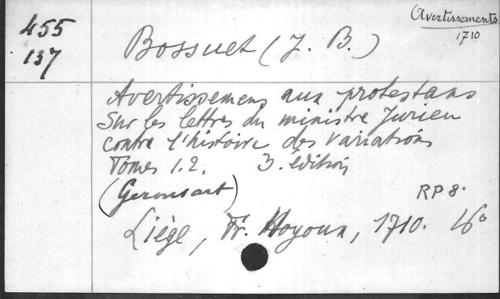 455
137
Avertissements
1710
Bossuet (J. B.)
Avertissemens aux protestans
sur les lettres du ministre Jurieu
contre l'histoire des variations
Tomes 1.2. 3. édition
RP 8.
Liége, Fr. Hoyoux, 1710. 16°